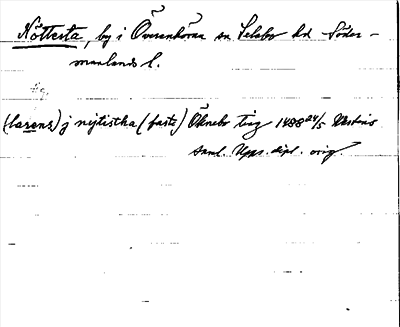 Nöttesta, by i Överenhörna sn Selebo hd Söder-
manlands l.
Äg.
(larens) j nejtistha (faste) Öknebo ting 1488 24/5
saml. Upps. dipl. orig.